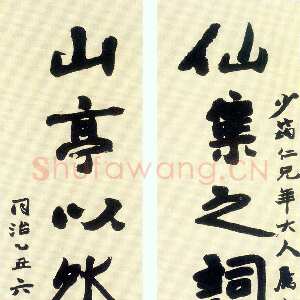 少仁兄年大人属
仙集之詞
山亭以外
同治乙丑六
Shufawang.CN